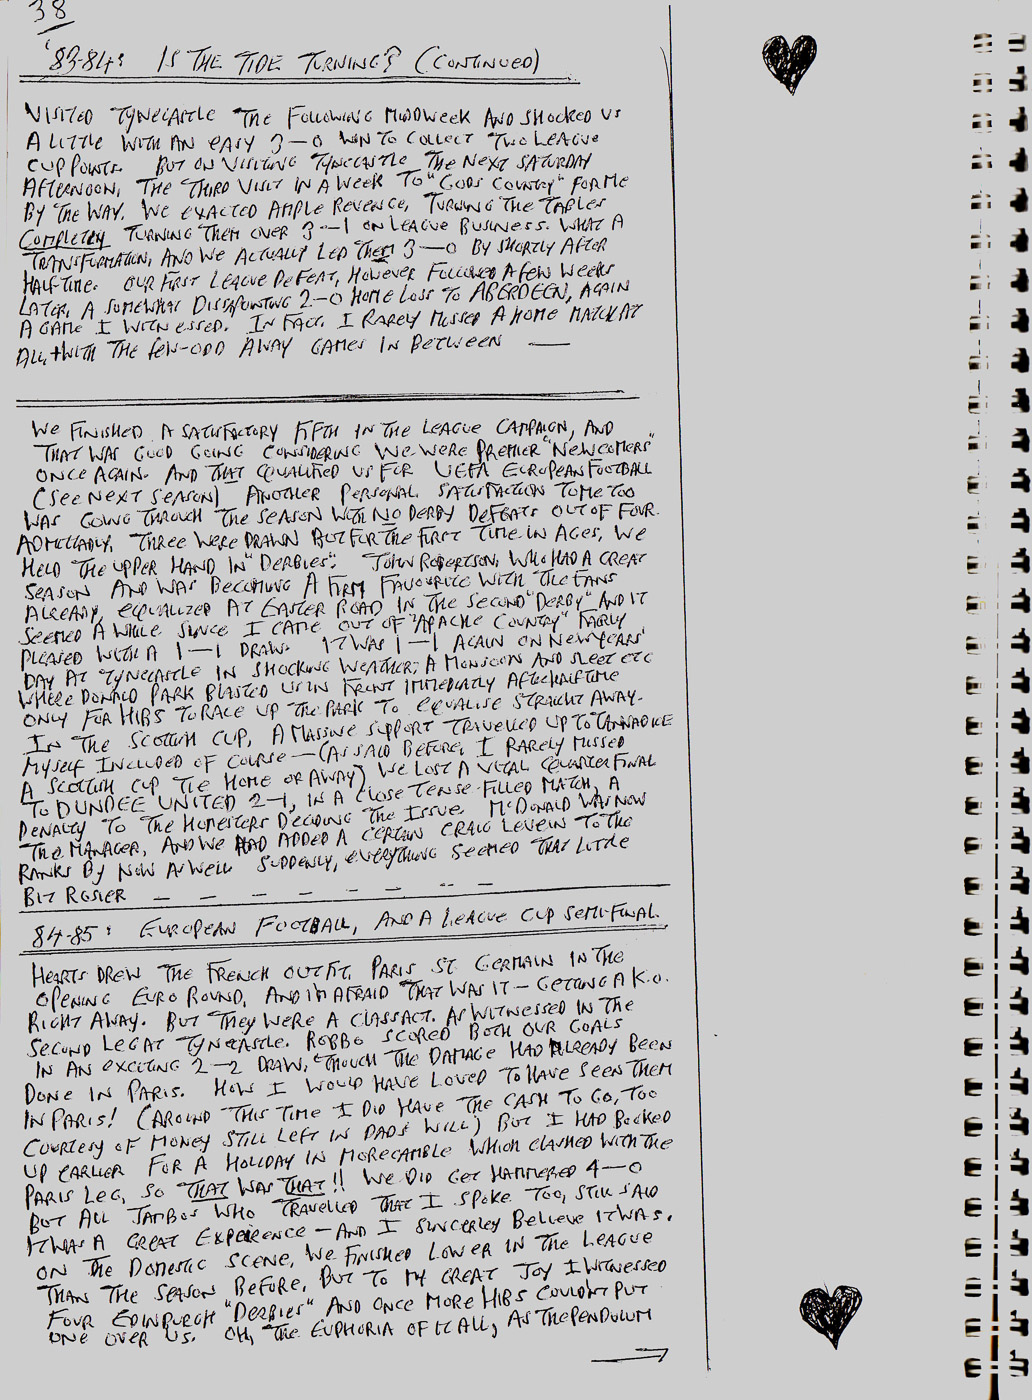 38
'83-84: IS THE TIDE TURNING? (CONTINUED)
VISITED TYNECASTLE THE FOLLOWING MIDWEEK AND SHOCKED US
A LITTLE WITH AN EASY 3-0 WIN TO COLLECT TWO LEAGUE
CUP POINTS. BUT ON VISITING TYNECASTLE THE NEXT SATURDAY
AFTERNOON, THE THIRD VISIT IN A WEEK TO "GODS COUNTRY" FOR ME
BY THE WAY. WE EXACTED AMPLE REVENGE, TURNING THE TABLES
COMPLETELY TURNING THEM OVER 3-1 ON LEAGUE BUSINESS. WHAT A
TRANSFORMATION, AND WE ACTUALLY LED THEM 3-0 BY SHORTLY AFTER
HALF-TIME. OUR FIRST LEAGUE DEFEAT, HOWEVER FOLLOWED A FEW WEEKS
LATER, A SOMEWHAT DISSAPOINTING 2-0 HOME LOSS TO ABERDEEN, AGAIN
A GAME I WITNESSED. IN FACT, I RARELY MISSED A HOME MATCH AT
ALL, + WITH THE FEW-ODD AWAY GAMES IN BETWEEN —
WE FINISHED A SATISFACTORY FIFTH IN THE LEAGUE CAMPAIGN, AND
THAT WAS GOOD GOING CONSIDERING WE WERE PREMIER "NEWCOMERS"
ONCE AGAIN. AND THAT QUALIFIED US FOR UEFA EUROPEAN FOOTBALL
(SEE NEXT SEASON) ANOTHER PERSONAL SATISFACTION TO ME TOO
WAS GOING THROUGH THE SEASON WITH NO DERBY DEFEATS OUT OF FOUR.
ADMITTADLY, THREE WERE DRAWN BUT FOR THE FIRST TIME IN AGES, WE
HELD THE UPPER HAND IN "DERBIES". JOHN ROBERTSON, WHO HAD A GREAT
SEASON AND WAS BECOMING A FIRM FAVOURITE WITH THE FANS
ALREADY, EQUALIZED AT EASTER ROAD IN THE SECOND "DERBY" AND IT
SEEMED A WHILE SINCE I CAME OUT OF "APACHE COUNTRY" FAIRLY
PLEASED WITH A 1-1 DRAW. IT WAS 1-1 AGAIN ON NEW YEARS'
DAY AT TYNECASTLE IN SHOCKING WEATHER; A MONSOON AND SLEET ETC
WHERE DONALD PARK BLASTED US IN FRONT IMMEDIATLY AFTER HALF TIME
ONLY FOR HIBS TO RACE UP THE PARK TO EQUALISE STRAIGHT AWAY.
IN THE SCOTTISH CUP, A MASSIVE SUPPORT TRAVELLED UP TO TANNADICE
MYSELF INCLUDED OF COURSE — (AS SAID BEFORE, I RARELY MISSED
A SCOTTISH CUP TIE HOME OR AWAY) WE LOST A VITAL QUARTER FINAL
TO DUNDEE UNITED 2-1, IN A CLOSE TENSE-FILLED MATCH, A
PENALTY TO THE HOMESTERS DECIDING THE ISSUE. McDONALD WAS NOW
THE MANAGER, AND WE HAD ADDED A CERTAIN CRAIG LEVEIN TO THE
RANKS BY NOW AS WELL. SUDDENLY, EVERYTHING SEEMED THAT LITTLE
BIT ROSIER — — — — — — — —
84-85: EUROPEAN FOOTBALL, AND A LEAGUE CUP SEMI-FINAL.
HEARTS DREW THE FRENCH OUTFIT, PARIS ST. GERMAIN IN THE
OPENING EURO ROUND, AND I'M AFRAID THAT WAS IT — GETTING A K.O.
RIGHT AWAY. BUT THEY WERE A CLASS ACT. AS WITNESSED IN THE
SECOND LEG AT TYNECASTLE. ROBBO SCORED BOTH OUR GOALS
IN AN EXCITING 2-2 DRAW, THOUGH THE DAMAGE HAD ALREADY BEEN
DONE IN PARIS. HOW I WOULD HAVE LOVED TO HAVE SEEN THEM
IN PARIS! (AROUND THIS TIME I DID HAVE THE CASH TO GO, TOO
COURTESY OF MONEY STILL LEFT IN DADS' WILL) BUT I HAD BOOKED
UP EARLIER FOR A HOLIDAY IN MORECAMBLE WHICH CLASHED WITH THE
PARIS LEG, SO THAT WAS THAT!! WE DID GET HAMMERED 4-0
BUT ALL JAMBOS WHO TRAVELLED THAT I SPOKE TOO, STILL SAID
IT WAS A GREAT EXPEIRENCE — AND I SINCERLEY BELIEVE IT WAS.
ON THE DOMESTIC SCENE, WE FINISHED LOWER IN THE LEAGUE
THAN THE SEASON BEFORE, BUT TO MY GREAT JOY I WITNESSED
FOUR EDINBURGH "DERBIES" AND ONCE MORE HIBS COULDN'T PUT
ONE OVER US. OH, THE EUPHORIA OF IT ALL, AS THE PENDULUM